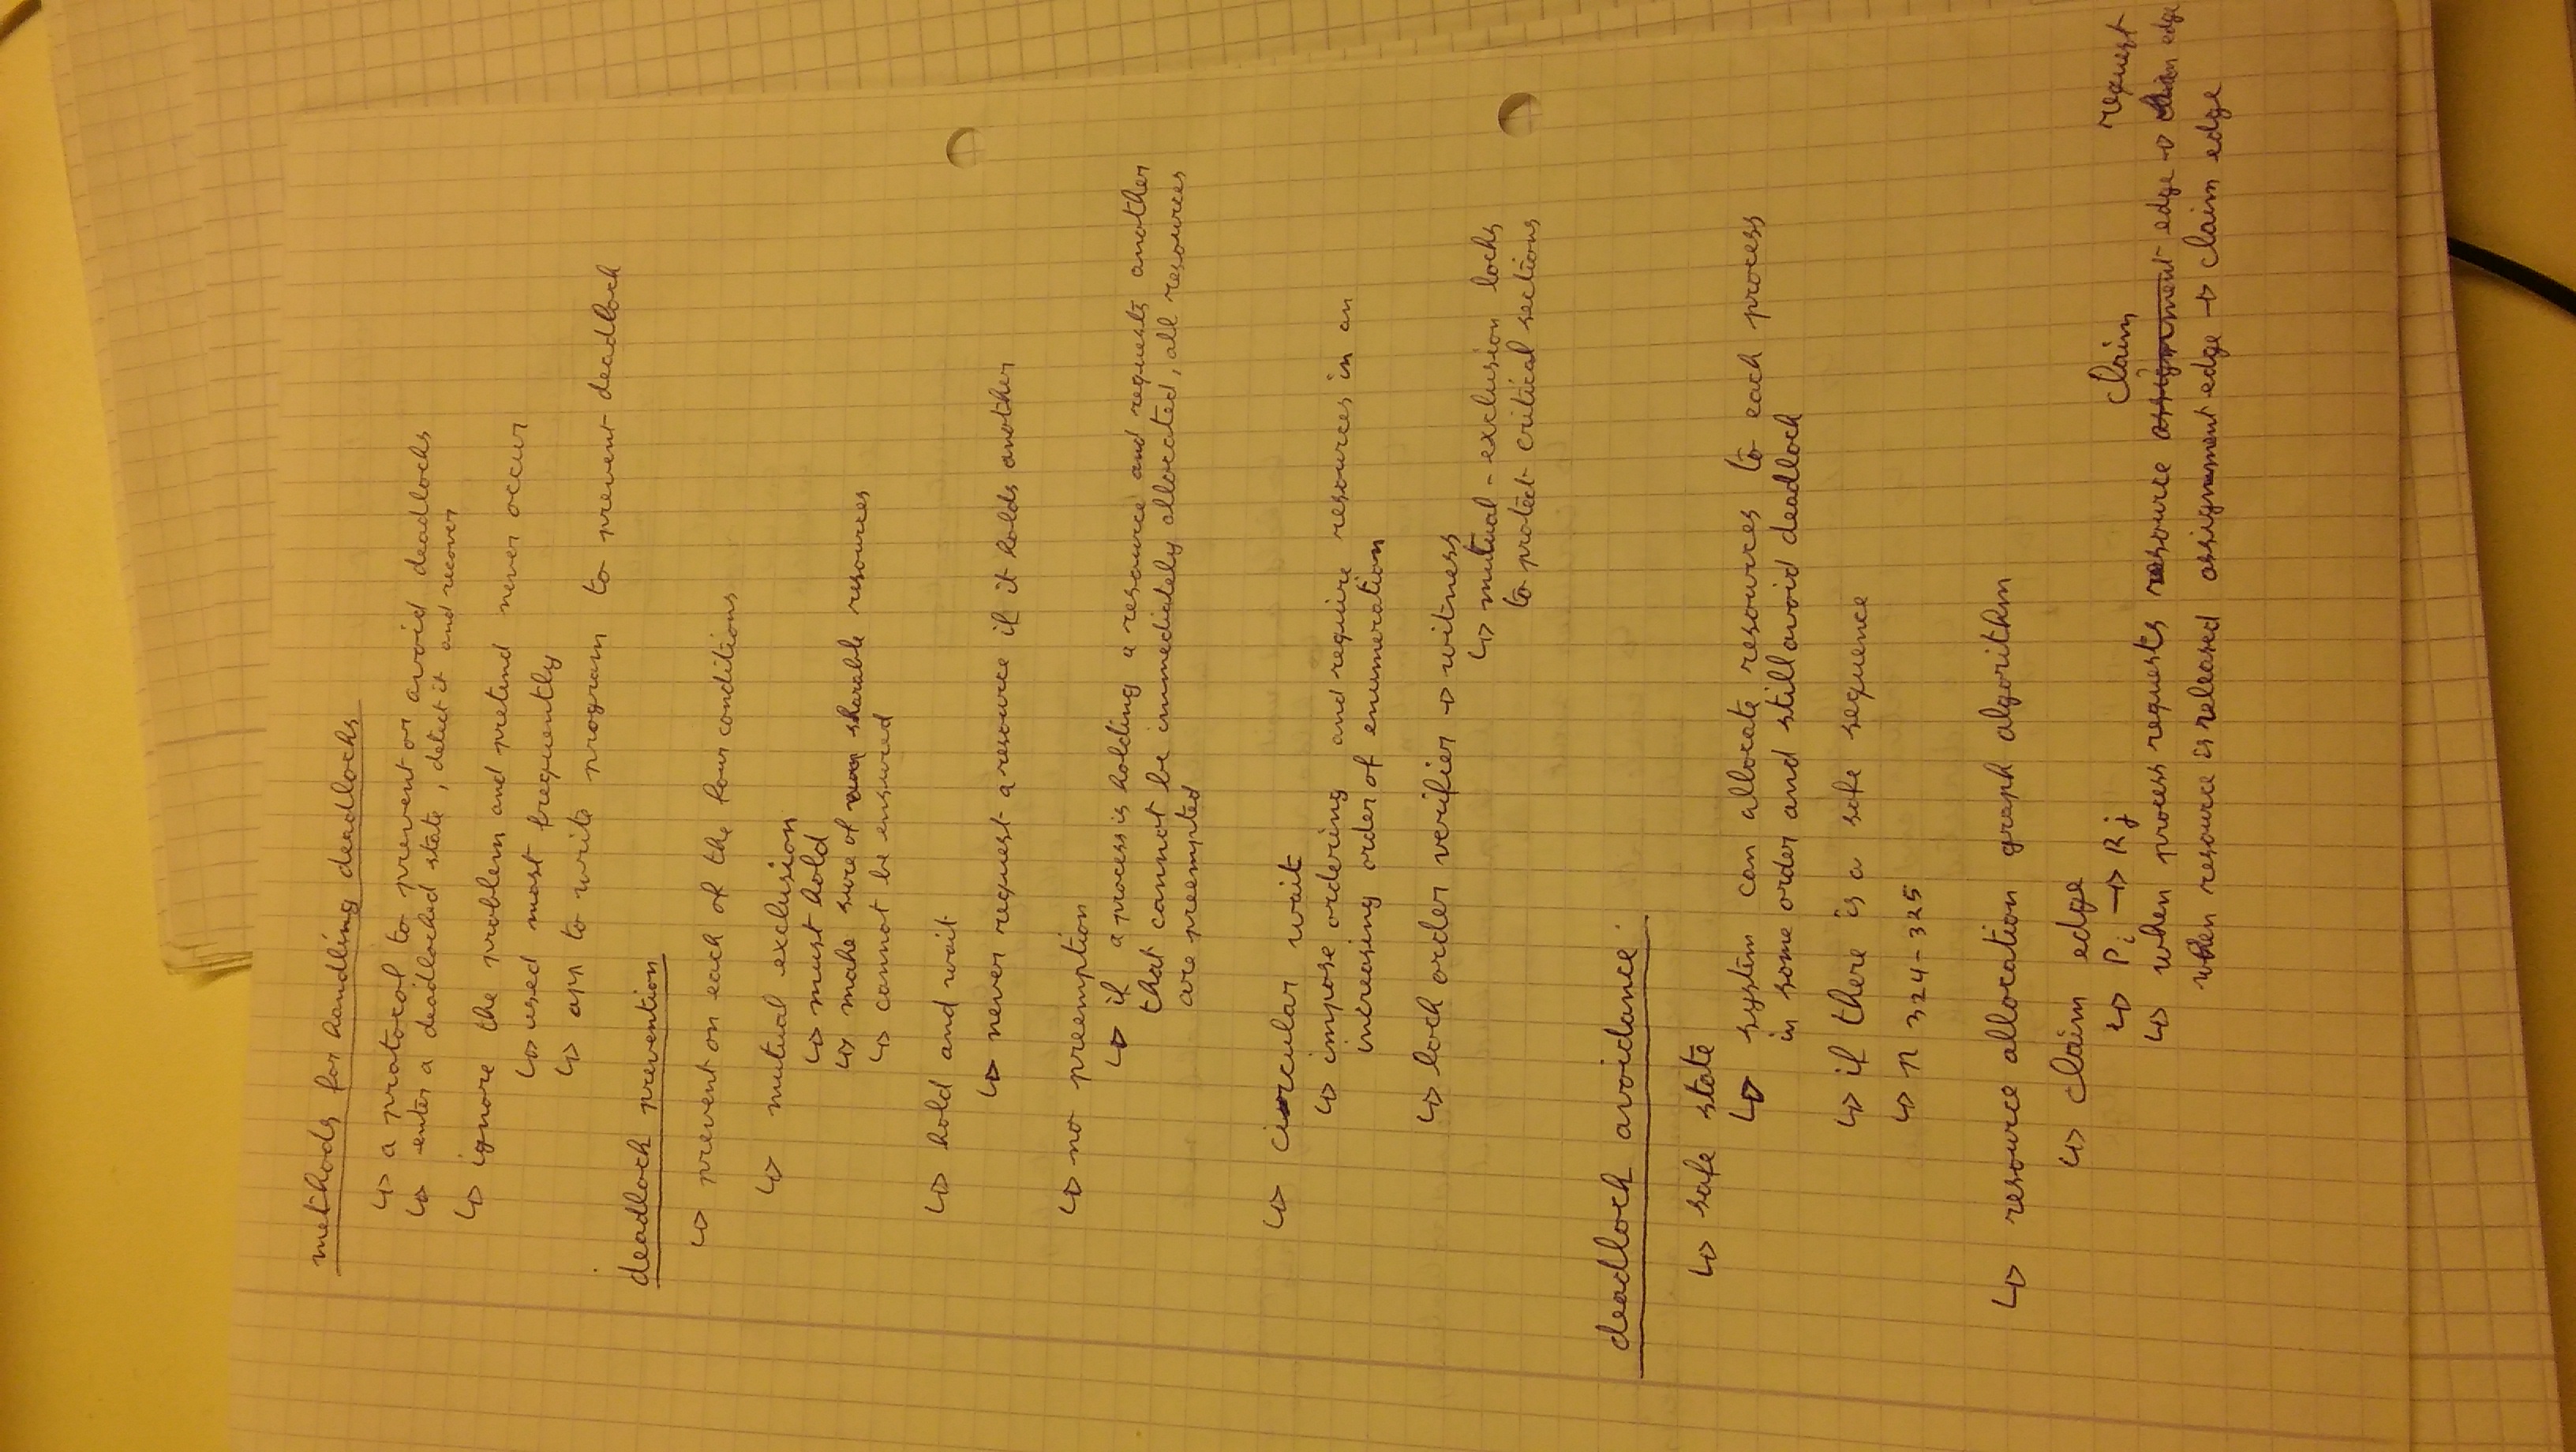 methods for handling deadlocks
↳ a protocol to prevent or avoid deadlocks
↳ enter a deadlocked state, detect it and recover
↳ ignore the problem and pretend never occur
↳ used most frequently
↳ app to write program to prevent deadlock
deadlock prevention
↳ prevent on each of the four conditions
↳ mutual exclusion
↳ must hold
↳ make sure of sharable resources
↳ cannot be ensured
↳ hold and wait
↳ never request a resource if it holds another
↳ no preemption
↳ if a process is holding a resource and requests another
that cannot be immediately allocated, all resources
are preempted
↳ circular wait
↳ impose ordering and require resources in an
increasing order of enumeration
↳ lock order verifier → witness
↳ mutual-exclusion locks
to protect critical sections
deadlock avoidance
↳ safe state
↳ system can allocate resources to each process
in some order and still avoid deadlock
↳ if there is a safe sequence
↳ p 324-325
↳ resource allocation graph algorithm
↳ claim edge
↳ Pi → Rj
claim request
↳ when process requests resource assignment edge → claim edge
when resource is released assignment edge → claim edge